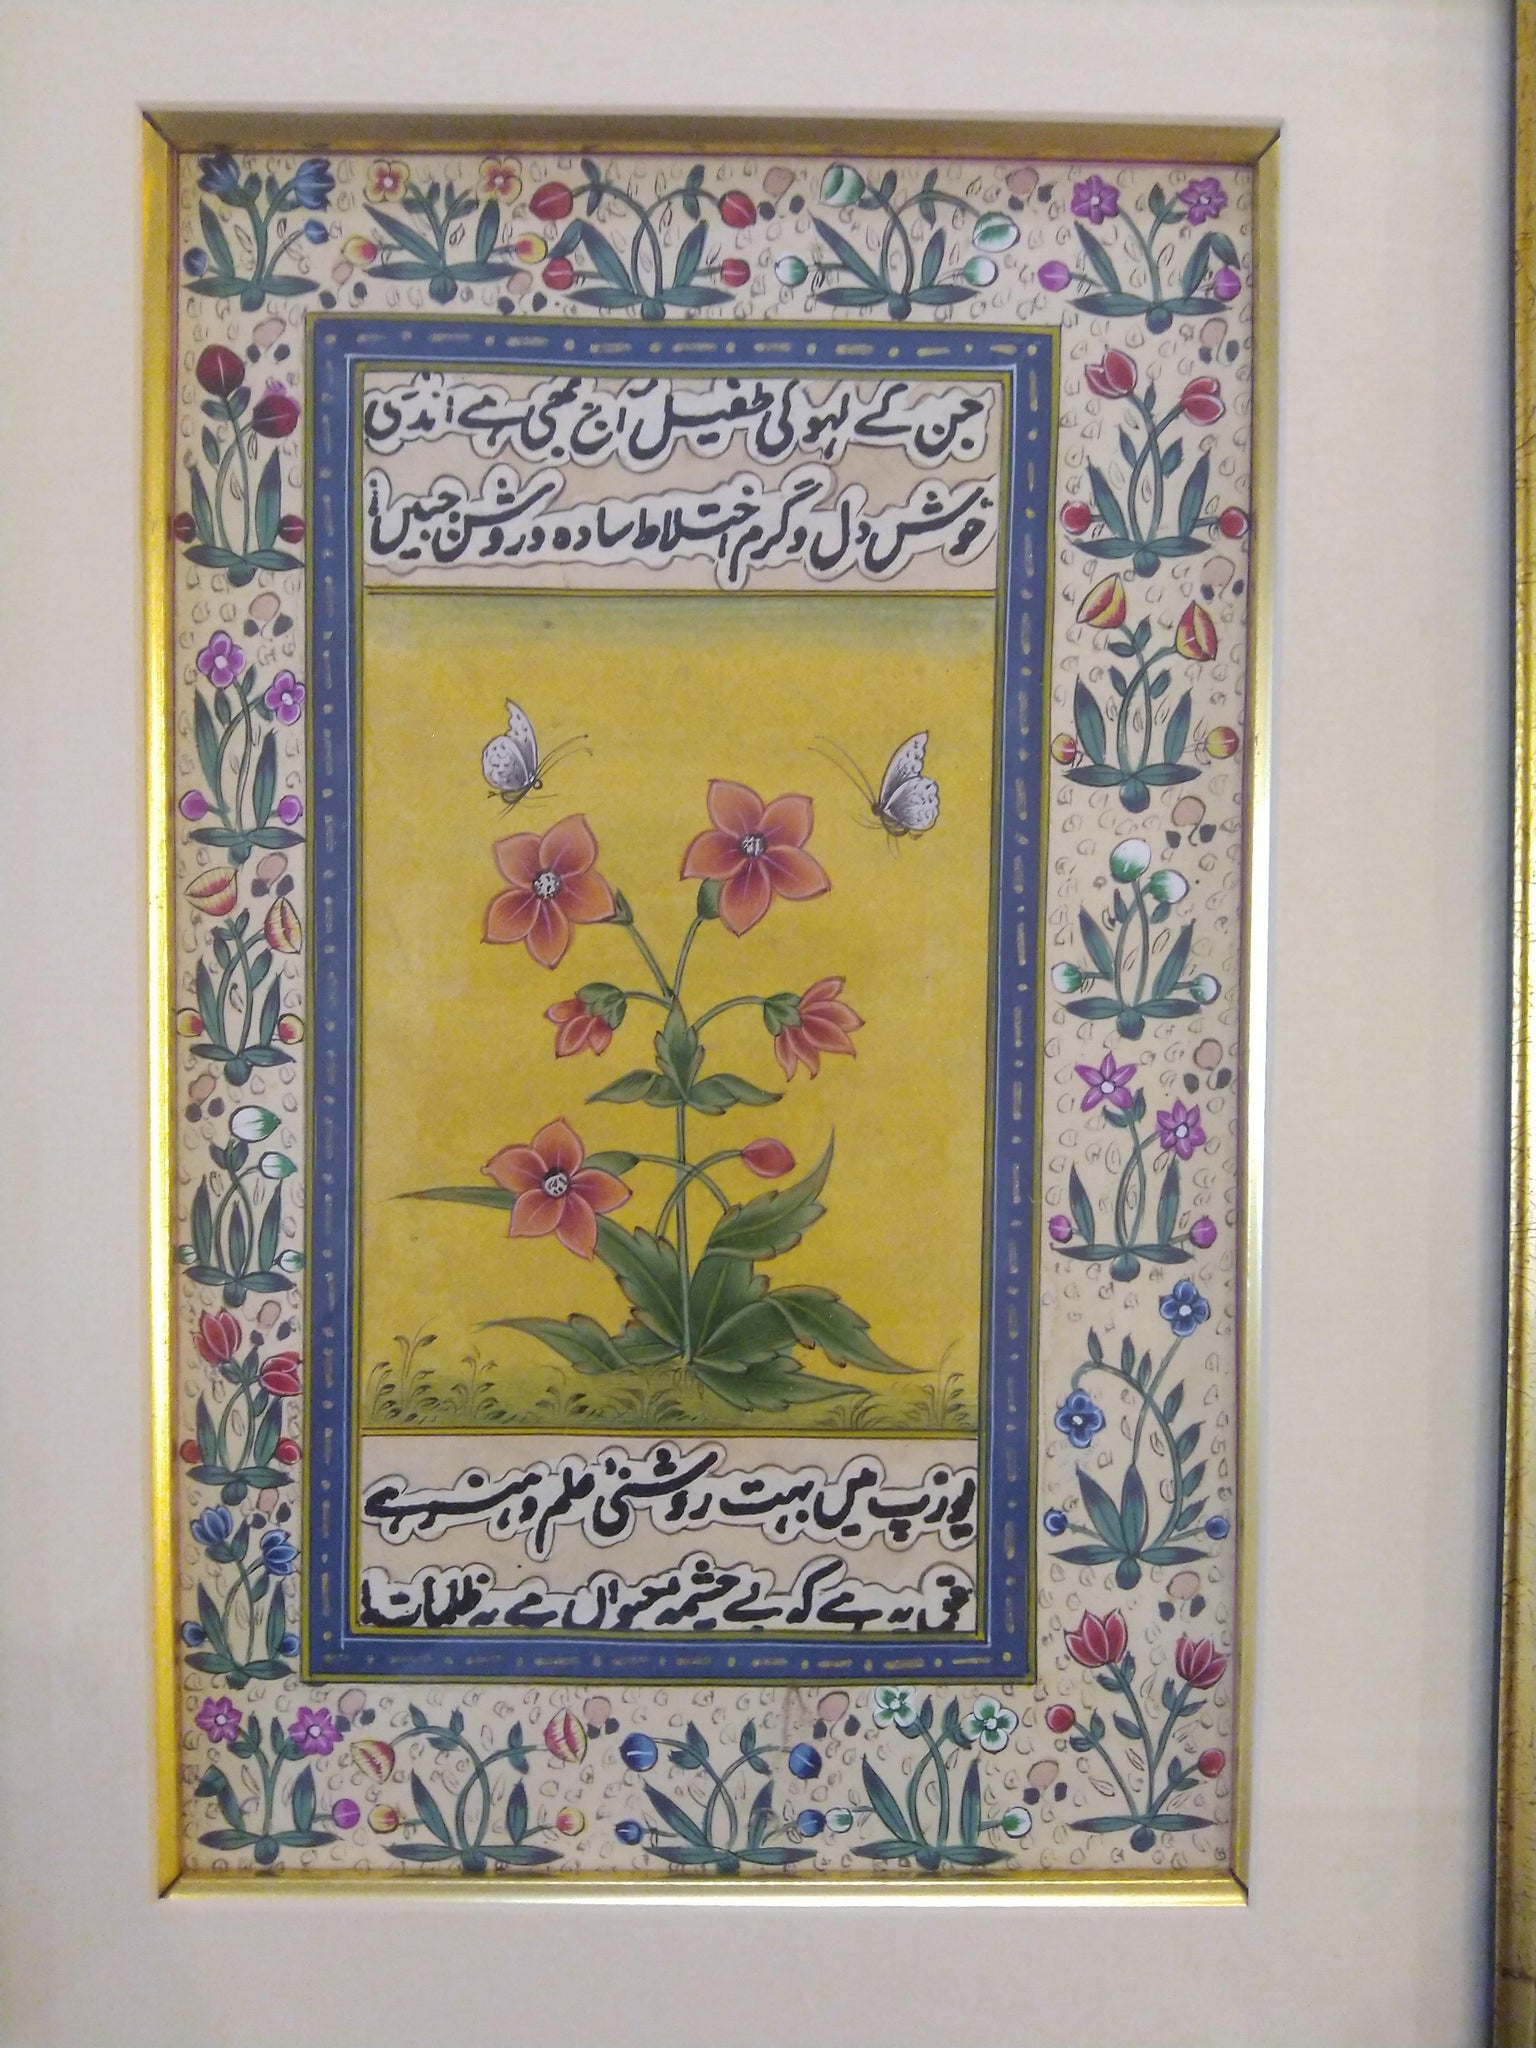 جن کے لہو کی طفیل آج بھی ہے اندلسی
خوش دل و گرم اختلاط سادہ و روشن جبیں
یورپ میں بہت روشنئ علم و ہنر ہے
حق یہ ہے کہ بے چشمہ حیواں ہے یہ ظلمات